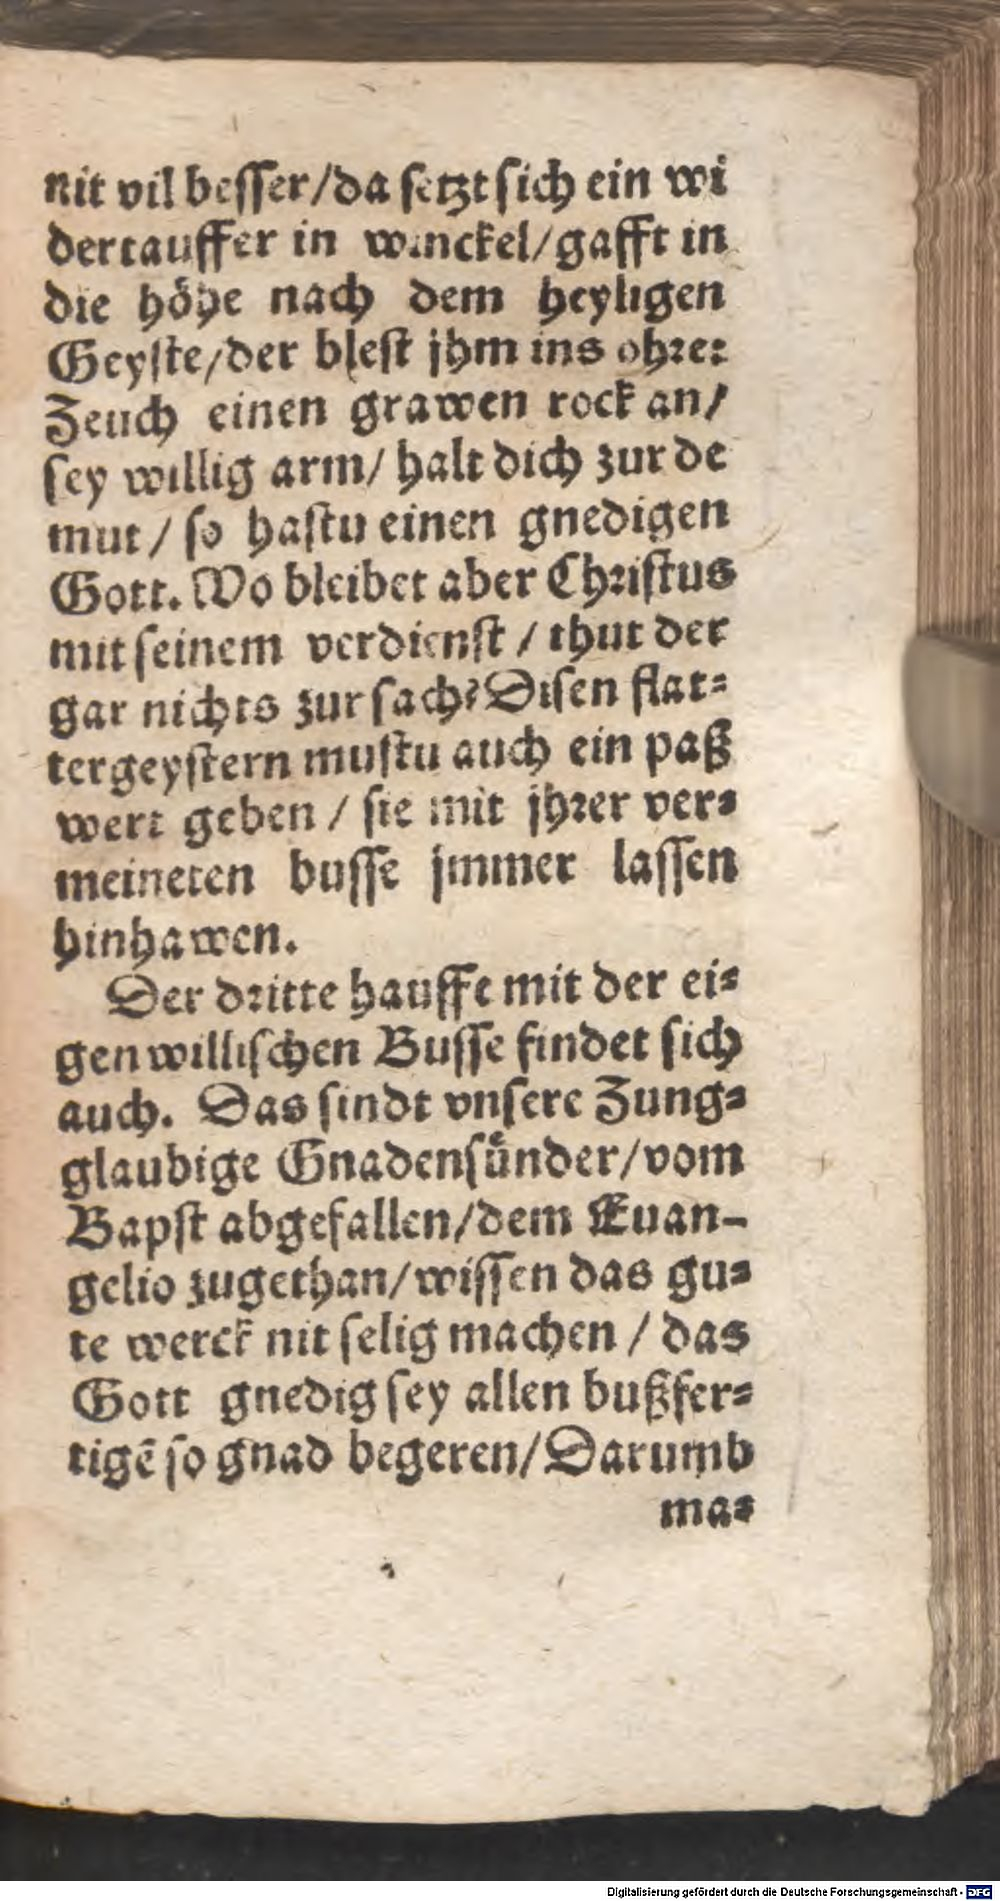 nit vil besser/da setzt sich ein wi
dertauffer in winckel/gafft in
die höhe nach dem heyligen
Geyste/der blest jhm ins ohre:
Zeuch einen grawen rock an/
sey willig arm/ halt dich zur de
mut / so hastu einen gnedigen
Gott. Wo bleibet aber Christus
mit seinem verdienst / thut der
gar nichts zur sach? Disen flat-
tergeystern mustu auch ein paß
wert geben / sie mit jhrer ver-
meineten busse jmmer lassen
hinhawen.
Der dritte hauffe mit der ei-
genwillischen Busse findet sich
auch. Das sindt vnsere Zung-
glaubige Gnadensünder/vom
Bapst abgefallen/dem Euan-
gelio zugethan/wissen das gu-
te werck nit selig machen / das
Gott gnedig sey allen bußfer-
tigē so gnad begeren/Darumb
ma-
Digitalisierung gefördert durch die Deutsche Forschungsgemeinschaft - DFG